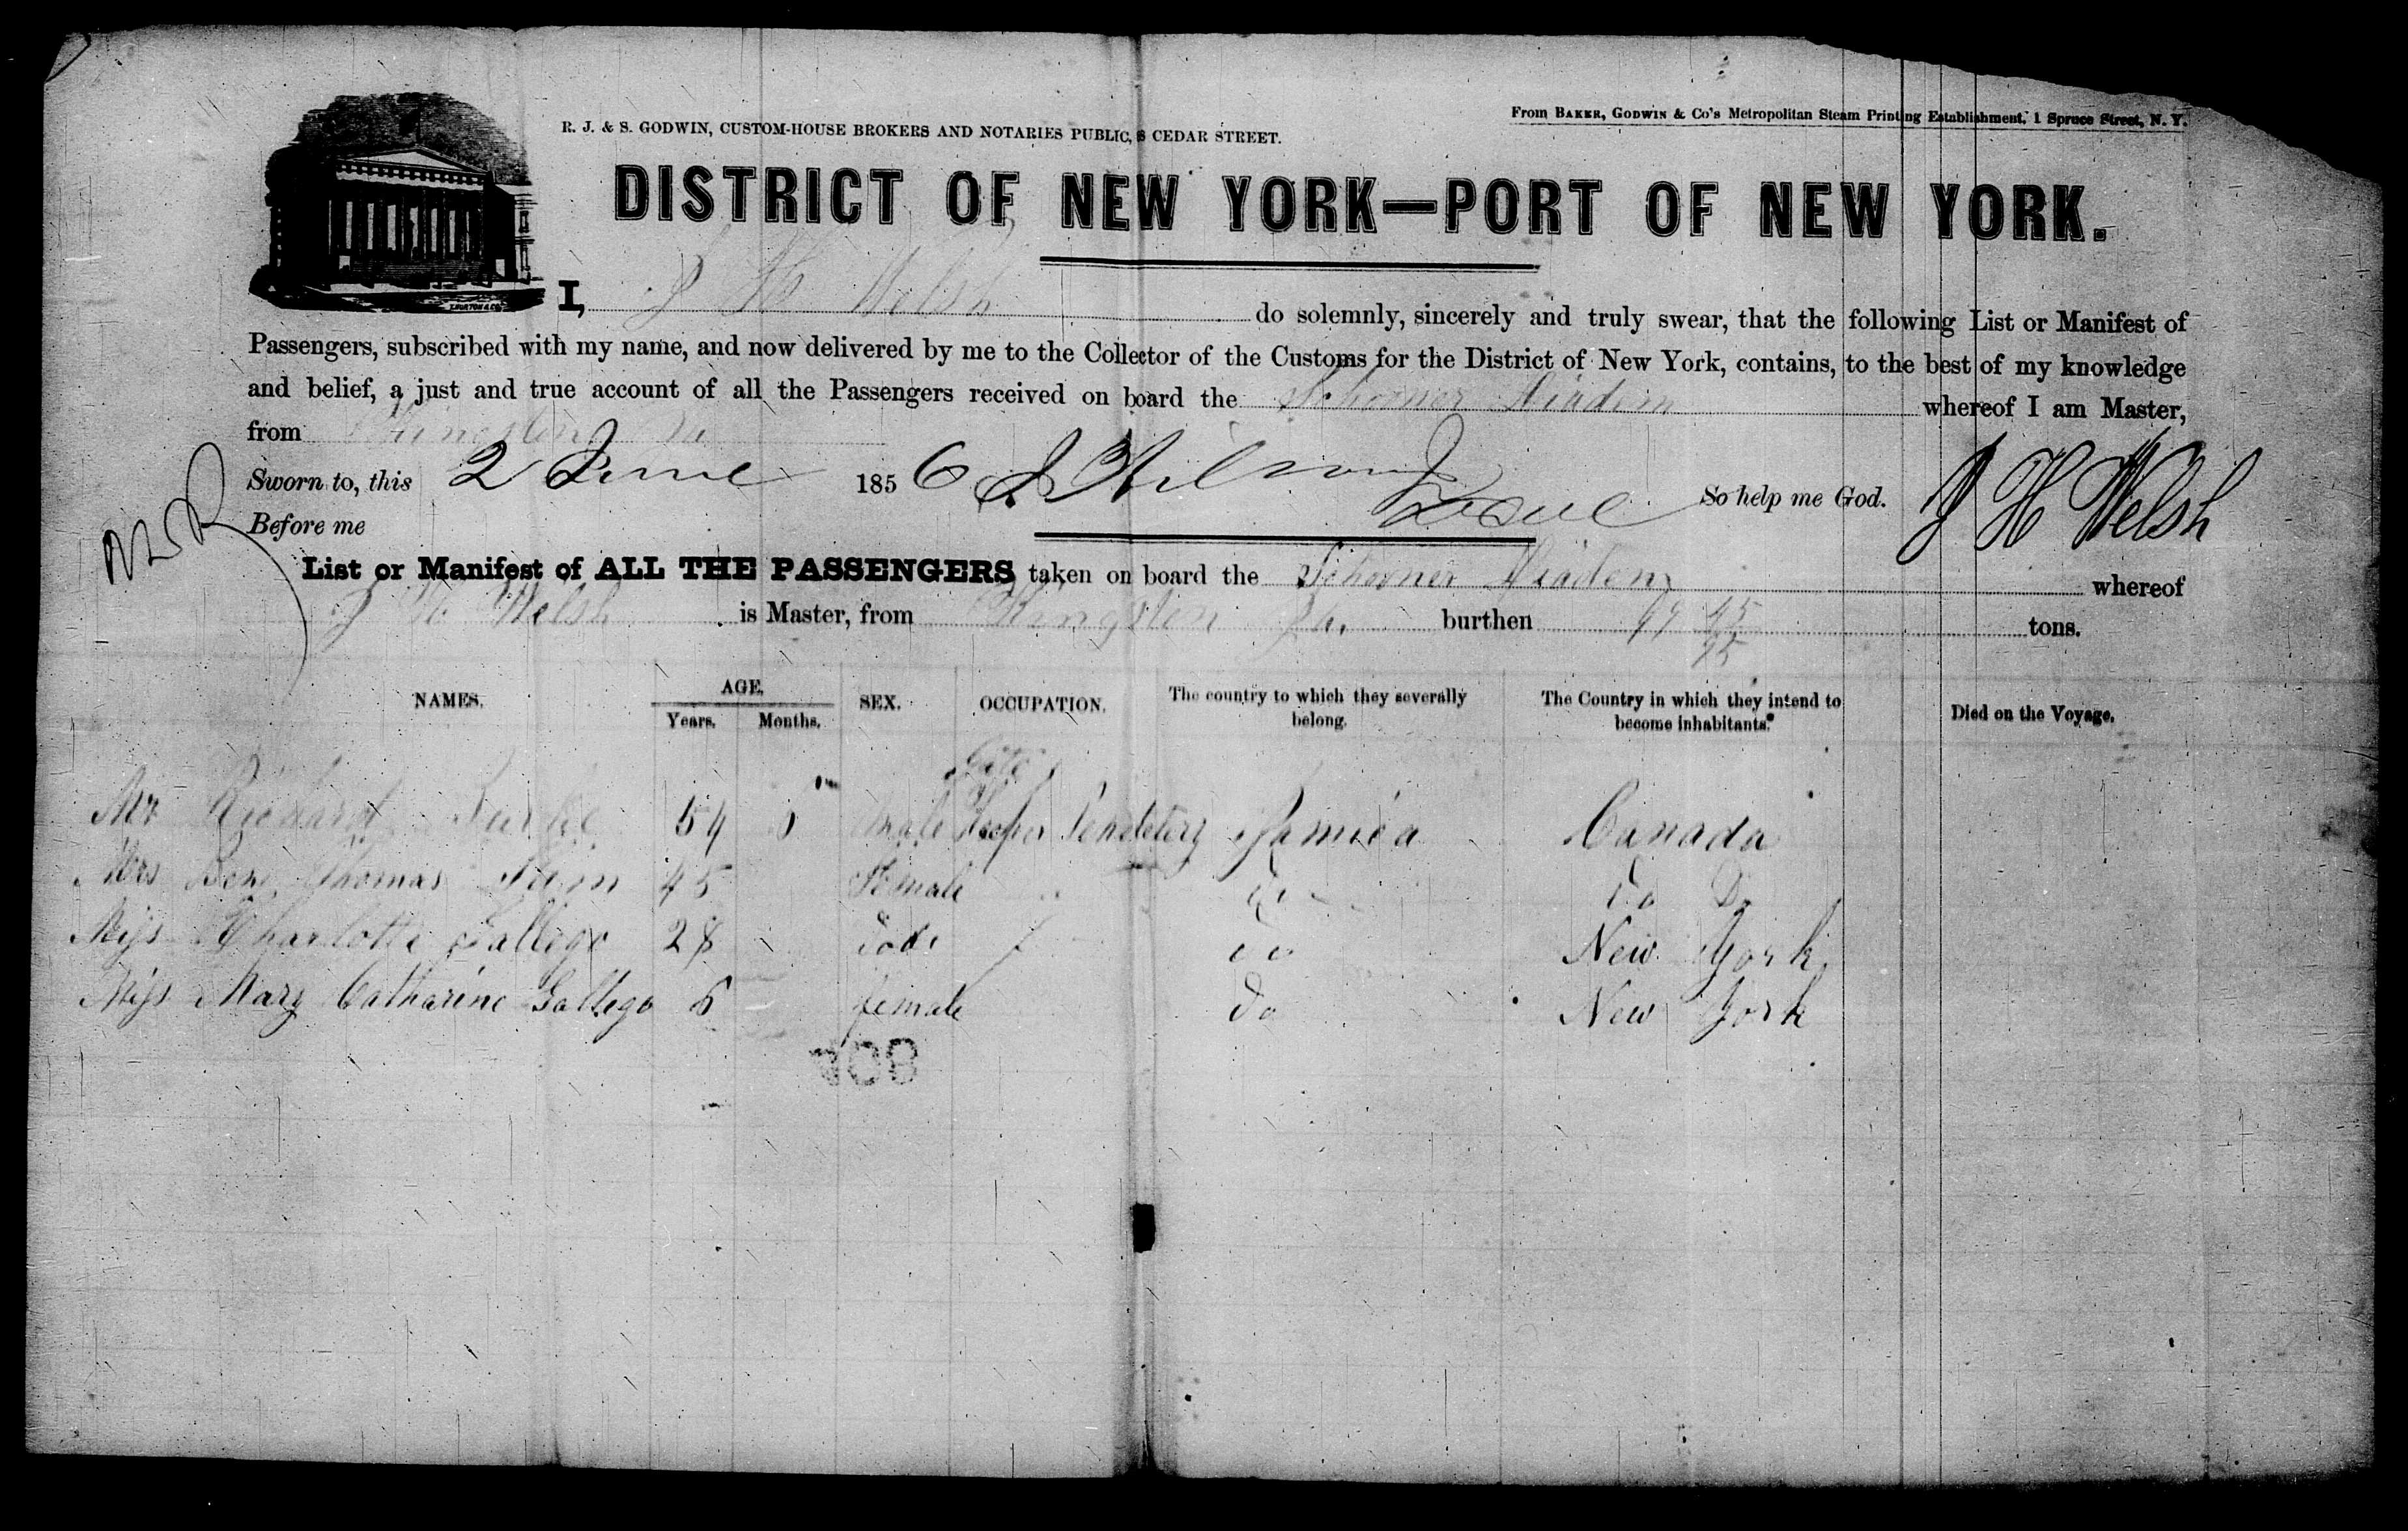 From BAKER, GODWIN & Co's Metropolitan Steam Printing Establishment, 1 Spruce Street, N. Y.
R. J. & S. GODWIN, CUSTOM-HOUSE BROKERS AND NOTARIES PUBLIC, 8 CEDAR STREET.
DISTRICT OF NEW YORK—PORT OF NEW YORK.
I, J H Welsh do solemnly, sincerely and truly swear, that the following List or Manifest of
Passengers, subscribed with my name, and now delivered by me to the Collector of the Customs for the District of New York, contains, to the best of my knowledge
and belief, a just and true account of all the Passengers received on board the Schooner Diadem whereof I am Master,
from Kingston Ja
Sworn to, this 2 June 1856 So help me God. J H Welsh
Before me
List or Manifest of ALL THE PASSENGERS taken on board the Schooner Diadem whereof
J H Welsh is Master, from Kingston Ja. burthen tons.
NAMES. AGE. SEX. OCCUPATION. The country to which they severally belong. The Country in which they intend to become inhabitants. Died on the Voyage.
Years. Months.
Mr Richard 54 male Keeper Penetetery Jamica Canada
Mrs Thomas 45 Female Do Do Do
Miss Charlotte Gallego 28 Do Do New York
Miss Mary Catharine Gallego 6 female Do New York